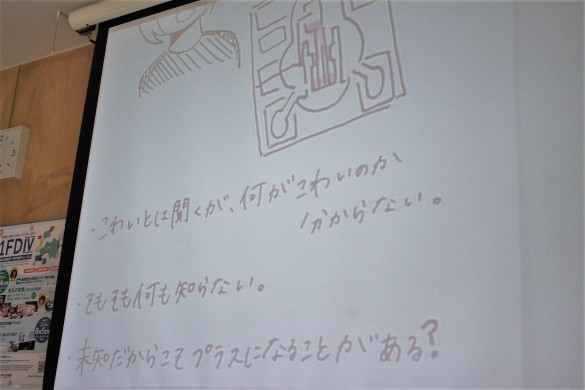 ・こわいとは聞くが、何がこわいのか
分からない。
・そもそも何も知らない。
・未知だからこそプラスになることがある?
1FDIV